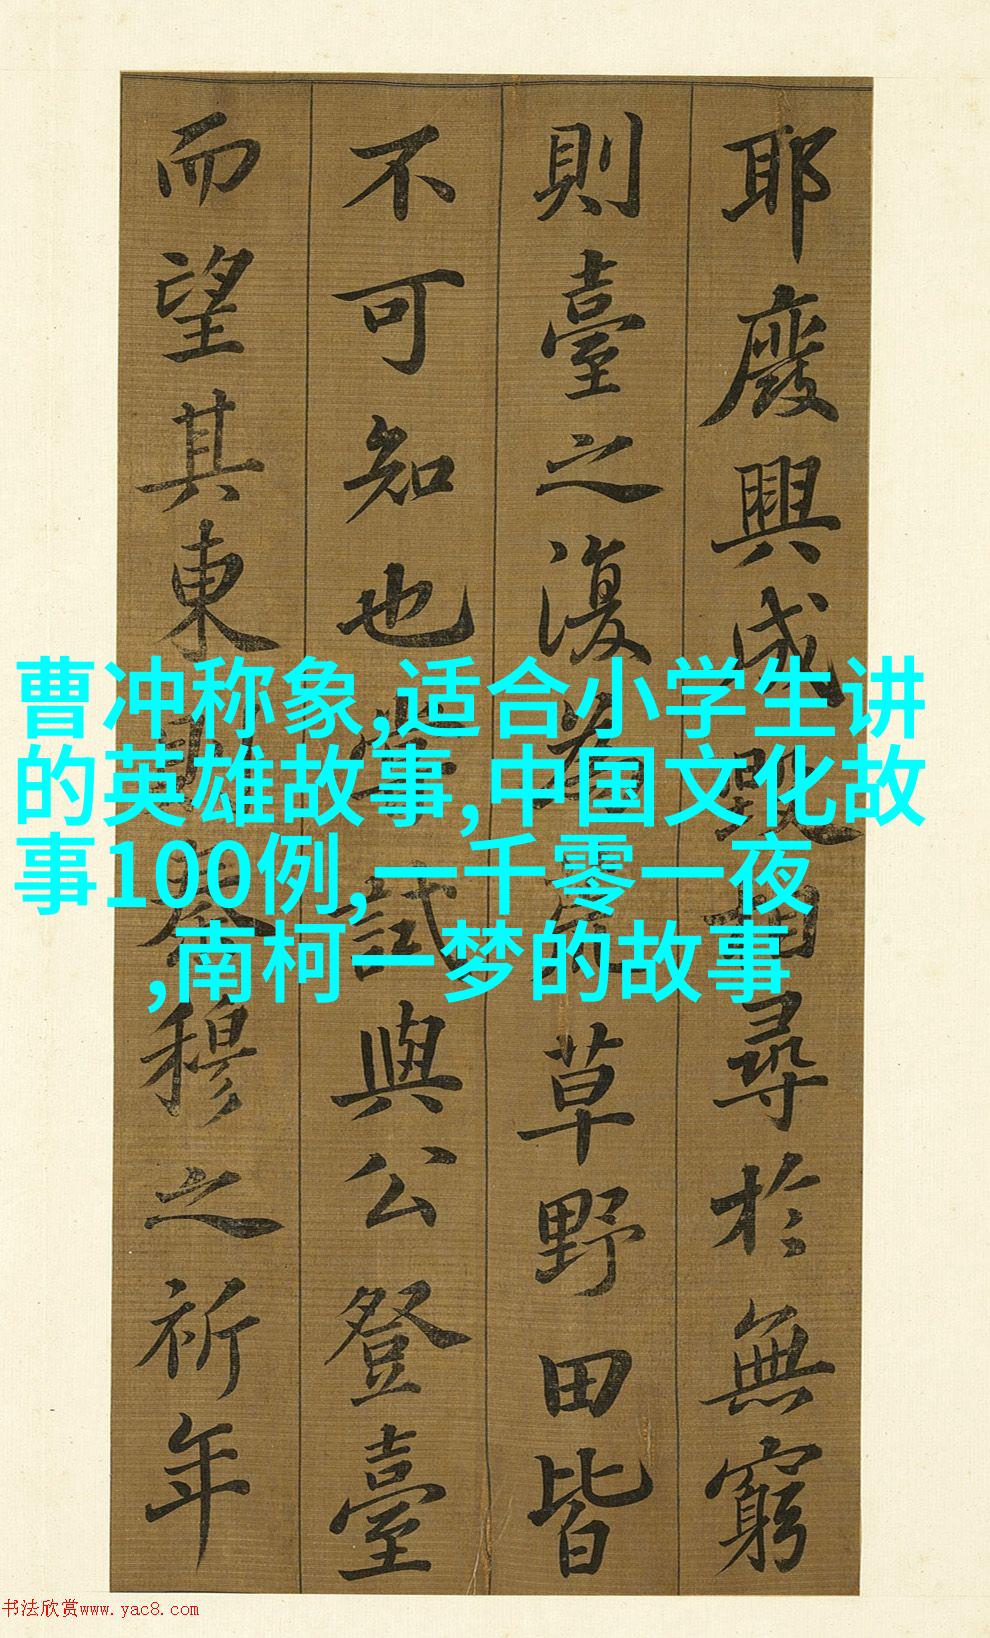 耶廢興成毀相尋於無窮
則臺之復為荒草野田皆
不可知也嘗試與公登臺
而望其東則秦穆之祈年
曹冲称象,适合小学生讲
的英雄故事,中国文化故
事100例,一千零一夜
,南柯一梦的故事
书法欣赏www.yac8.com